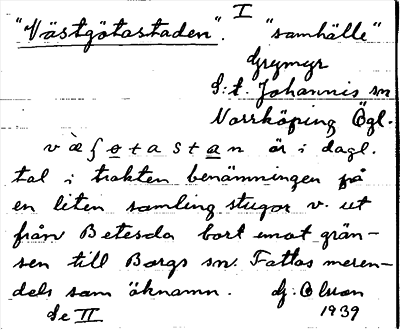 I
"Västgötastaden". "samhälle"
Grymyr
S:t. Johannis sn
Norrköping Ögl.
væʃøtastan är i dagl.
tal i trakten benämningen på
en liten samling stugor v. ut
från Betesda bort emot grän-
sen till Borgs sn. Fattas meren-
dels som öknamn. G. Olson
Se II 1939